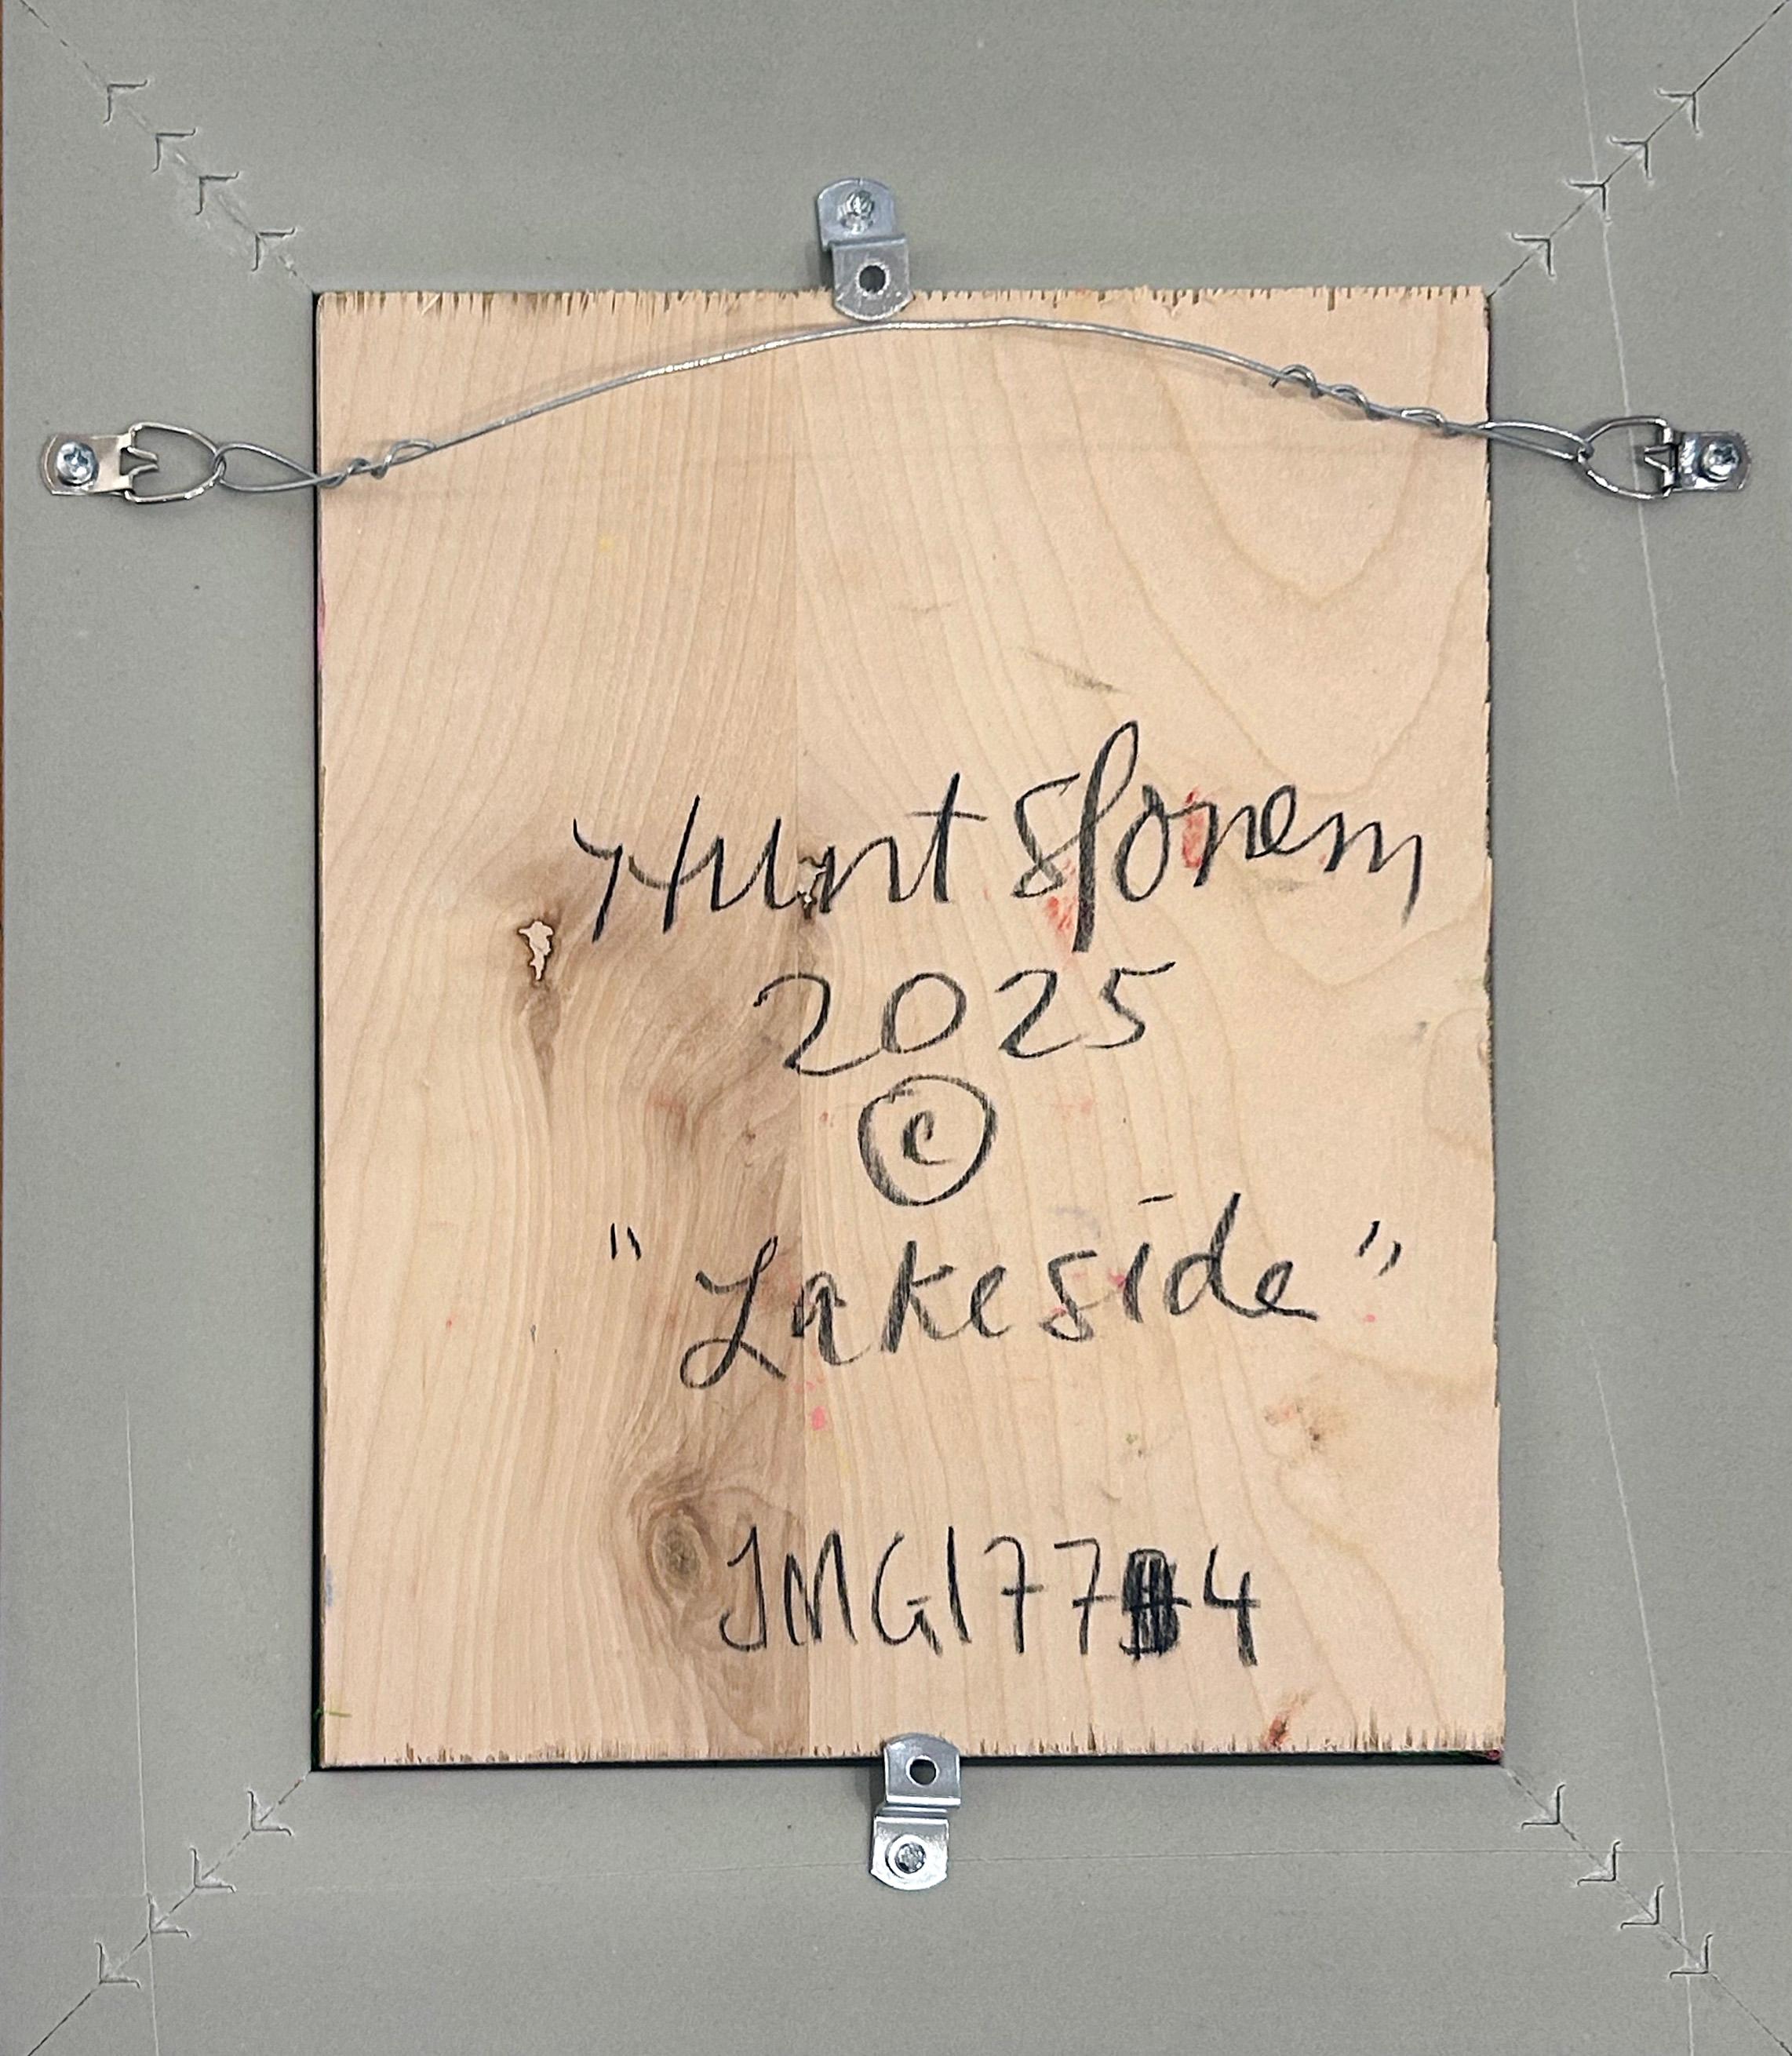 Hunt Slonem
2025
©
"Lakeside"
JMG1774